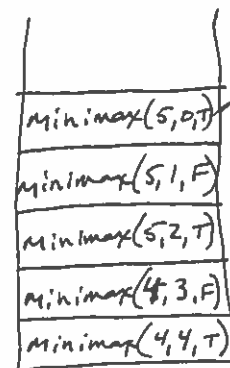 minimax(5,0,T)
minimax(5,1,F)
minimax(5,2,T)
minimax(4,3,F)
minimax(4,4,T)